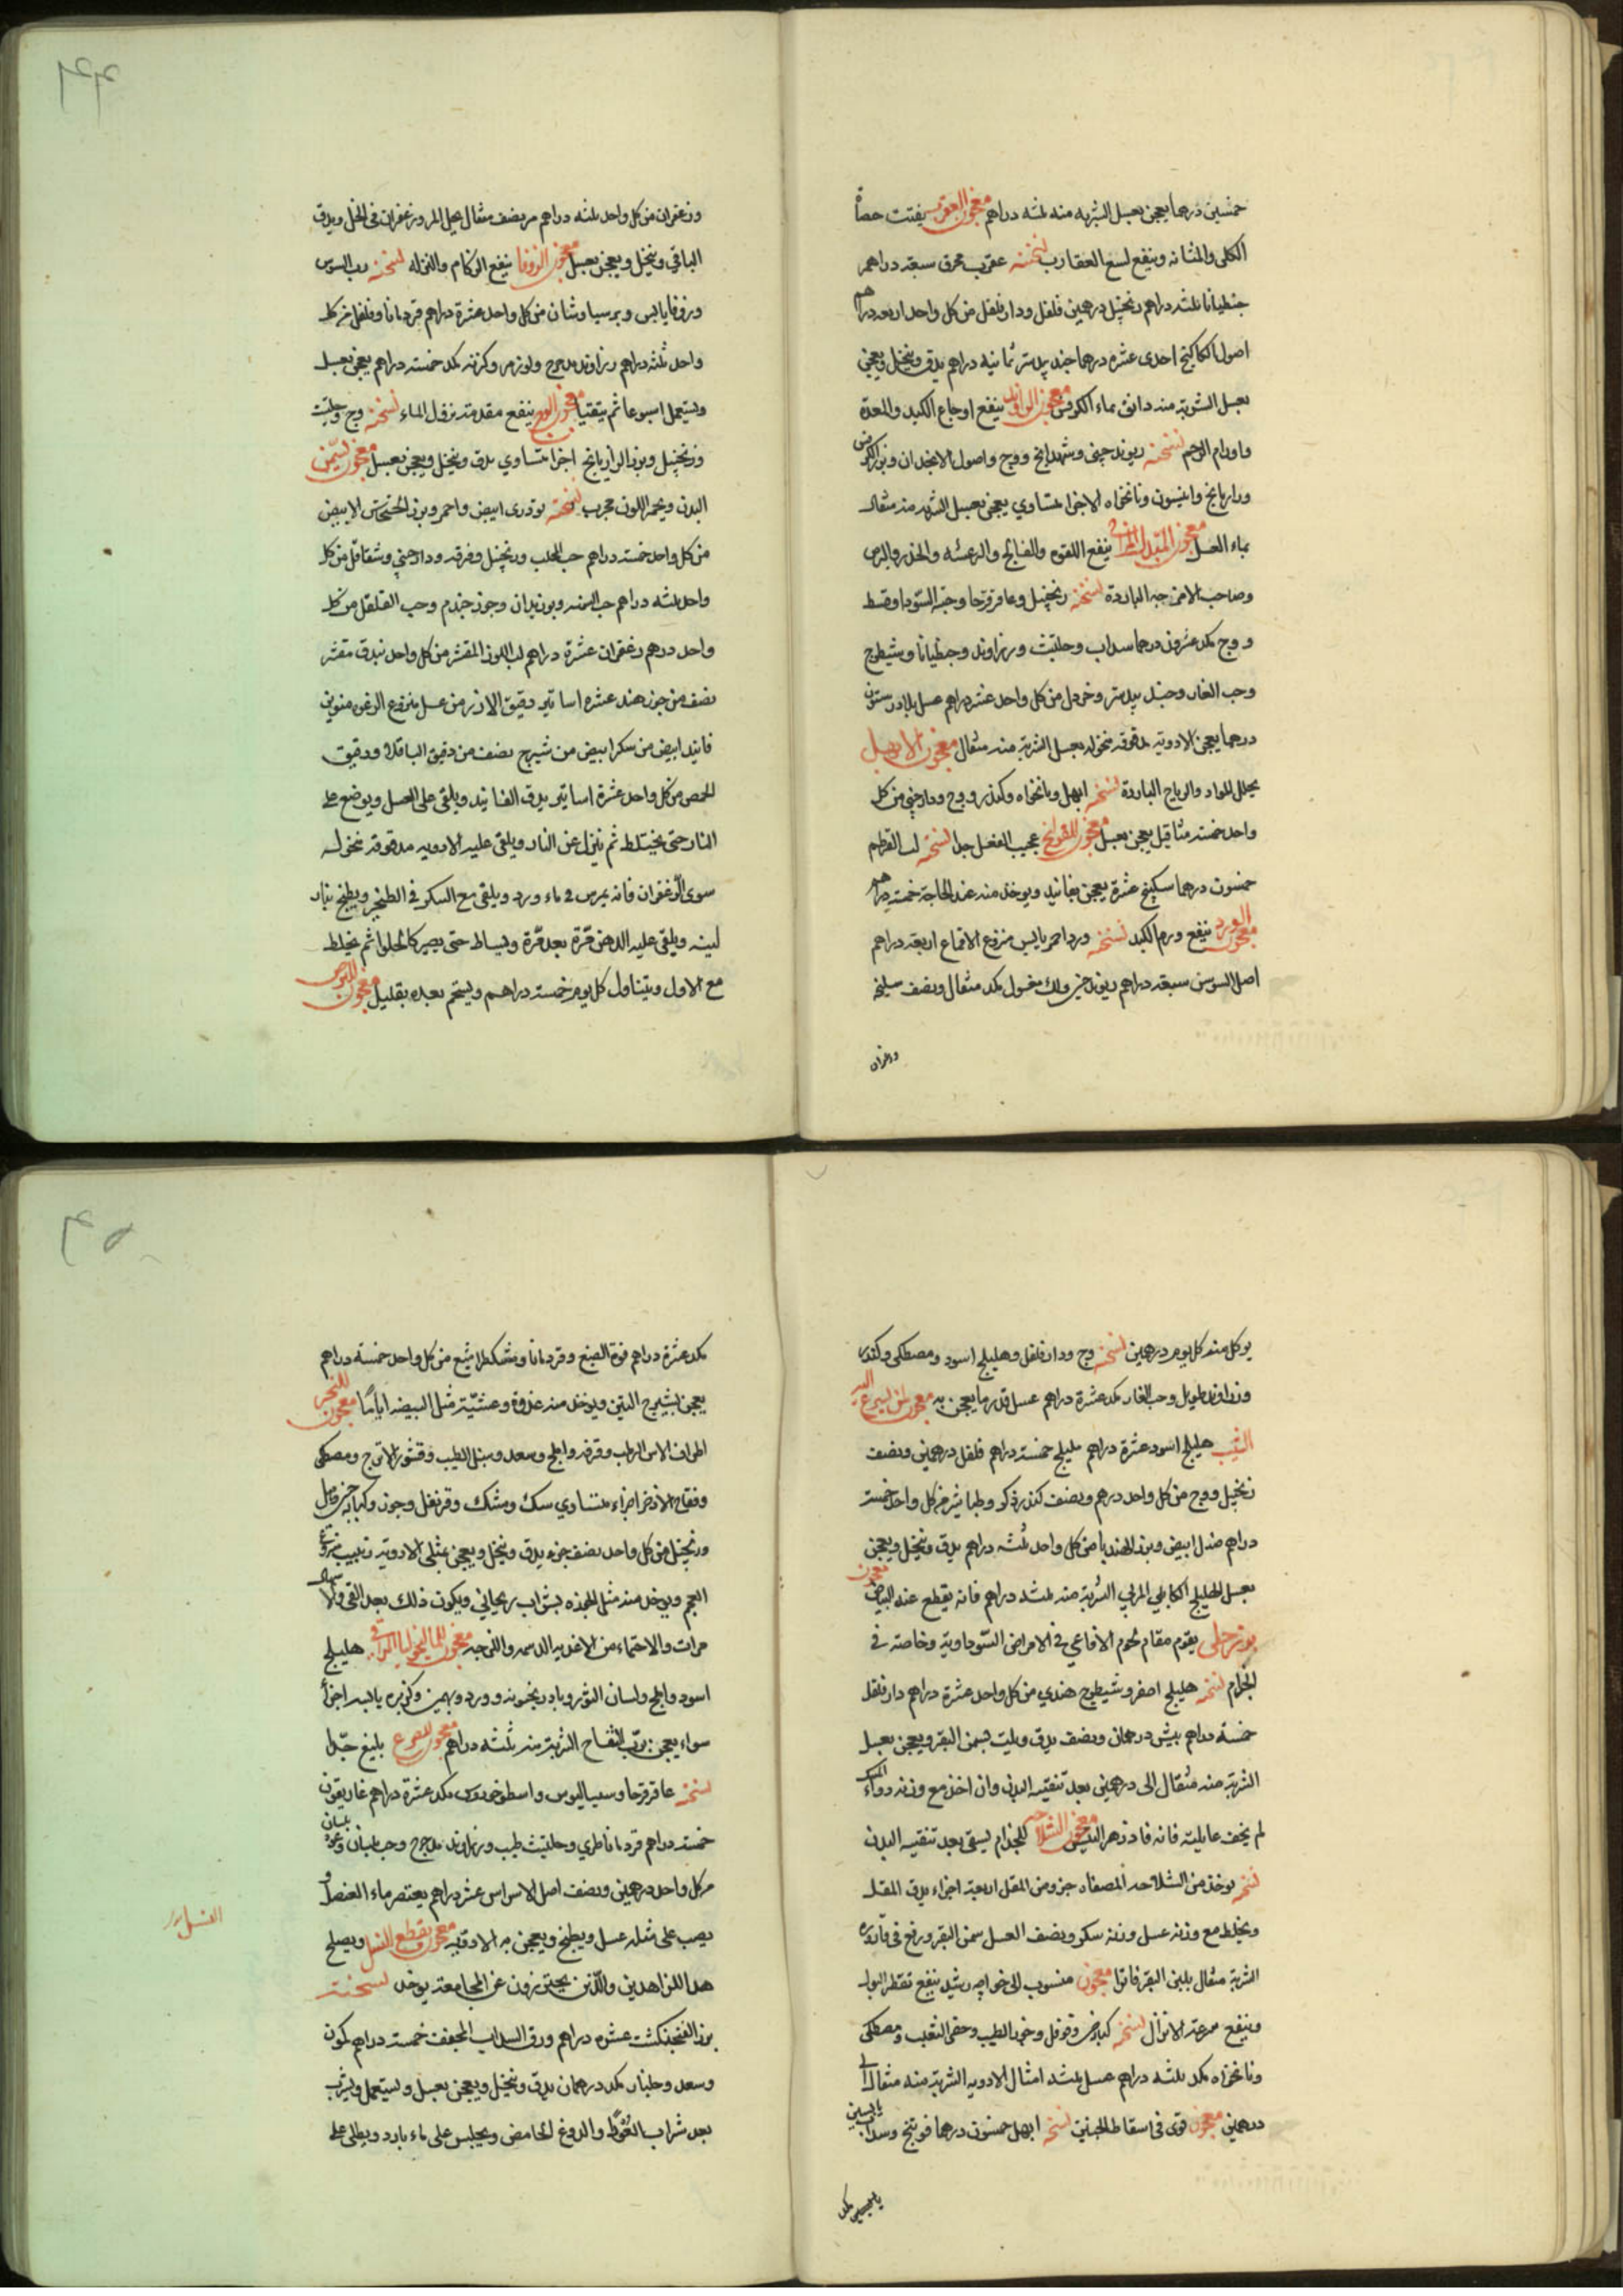 خمسين درهما يعجن بعسل الشربه منه ثلثه دراهم معجون العقرب يفتت حصاة
الكلى والمثانه وينفع لسع العقارب نسخته عقرب محرق سبعة دراهم
جنطيانا ثلثه دراهم زنجبيل درهمين فلفل ودارفلفل من كل واحد اربعه دراهم
اصول الكاكنج احدى عشره درهما جندبيدستر ثمانيه دراهم يدق وينخل ويعجن
بعسل الشربة منه دانق بماء الكرفس معجون الراوند ينفع اوجاع الكبد والمعدة
واورام الرحم نسخته ريوند چينى وشهدانج ووج واصول الانجدان وبزر الكرفس
ورازيانج وانيسون ونانخواه الاجزا متساوي يعجن بعسل الشربه منه مثقال
بماء العسل معجون ينفع اللقوه والفالج والرعشه والخدر والبرص
وصاحب الامزجه البارده نسخته زنجبيل وعاقرقرحا وحبة السودا وقسط
ووج مكد عشرون درهما سداب وحلتيت وزراوند وجنطيانا وشيطرج
وحب الغار وجندبيدستر وخردل من كل واحد عشر دراهم عسل بلادر ستون
درهما يعجن الادويه مدقوقه منخوله بعسل الشربة منه مثقال معجون الابهل
يحلل المواد والرياح الباردة نسخته ابهل ونانخواه وكندر ووج ودارچينى من كل
واحد خمسة مثاقيل يعجن بعسل معجون للقولنج عجيب الفعل جدا نسخته لب القرطم
خمسون درهما سكبينج عشرة يعجن بفانيد ويوخذ منه عند الحاجة خمسة دراهم
معجون الورد ينفع ورم الكبد نسخته ورد احمر يابس منزوع الاقماع اربعة دراهم
اصل السوسن سبعة دراهم ريوند چينى ولك مغسول مكد مثقال ونصف سليخه
وزعفران
وزعفران من كل واحد ثلثه دراهم مر نصف مثقال يحل المر وزعفران فى الخل ويدق
الباقي وينخل ويعجن بعسل معجون الزوفا ينفع الزكام والنزله نسخته رب السوس
وزوفا يابس وبرسياوشان من كل واحد عشرة دراهم قردمانا وفلفل من كل
واحد ثلثه دراهم وزراوند مدحرج ولوز مر وكرنه مكد خمسة دراهم يعجن بعسل
ويستعمل اسبوعا ثم يتقيا معجون الوج ينفع مقدمة نزول الماء نسخته وج وحلتيت
وزنجبيل وبزر الرازيانج اجزا متساوي يدق وينخل ويعجن بعسل معجون يسمن
البدن ويحمر اللون مجرب نسخته تودرى ابيض واحمر وبزر الخشخاش الابيض
من كل واحد خمسة دراهم حب المحلب وزنجبيل وقرفه ودارچينى وشقاقل من كل
واحد ثلثه دراهم حب السمنه وبوزيدان وجوز جندم وحب القلقل من كل
واحد درهم زعفران عشرة دراهم لب اللوز المقشر من كل واحد بندق مقشر
نصف من جوز هند عشره اساتير دقيق الارز من عسل منزوع الرغوه منوين
فانيد ابيض من سكر ابيض من شيرج نصف من دقيق الباقلا ودقيق
الحمص من كل واحد عشرة اساتير يدق الفانيد ويلقى على العسل ويوضع على
النار حتى يختلط ثم ينزل عن النار ويلقى عليه الادويه مدقوقه منخوله
سوى الزعفران فانه يمرس فى ماء ورد ويلقى مع السكر فى الطنجير ويطبخ بنار
لينه ويلقى عليه الدهن مرة بعد مرة ويساط حتى يصير كالحلوا ثم يخلط
مع الاول ويتناول كل يوم خمسة دراهم ويستحم بعده بقليل معجون للبرص
يوكل منه كل يوم درهمين نسخته وج ودارفلفل وهليلج اسود ومصطكى وكندر
وزراوند طويل وحب الغار مكد عشرة دراهم عسل قدر ما يعجن به معجون لمن يسرع اليه
الشيب هليلج اسود عشرة دراهم بليلج خمسة دراهم فلفل درهمين ونصف
زنجبيل ووج من كل واحد درهم ونصف كندر ذكر وطباشير من كل واحد خمسة
دراهم صندل ابيض وبزر الهندبا من كل واحد ثلثه دراهم يدق وينخل ويعجن
بعسل الهليلج الكابلي المربى الشربة منه ثلثه دراهم فانه يقطع عنه البياض معجون
بوزرجلى يقوم مقام لحوم الافاعي فى الامراض السوداوية وخاصة فى
الجذام نسخته هليلج اصفر وشيطرج هندي من كل واحد عشرة دراهم دارفلفل
خمسة دراهم بيش درهمان ونصف يدق ويلت بسمن البقر ويعجن بعسل
الشربة منه مثقال الى درهمين بعد تنقيه البدن وان اخذ مع وزنه دواء المسك
لم يخف غايلته فانه فادزهر البيش معجون الشلاحه للجذام يسقى بعد تنقيه البدن
نسخته يوخذ من الشلاحه المصفاه جزو ومن المقل اربعة اجزاء يدق المقل
ويخلط مع وزنه عسل وزنه سكر ونصف العسل سمن البقر ورفع فى قاروره
الشربة مثقال بلبن البقر فاترا معجون منسوب الى خواجه رشيد ينفع تقطر البول
وينفع سرعة الانزال نسخته وقوفل الطيب وخصى الثعلب ومصطكى
ونانخواه مكد ثلثه دراهم عسل ثلثه امثال الادويه الشربة منه مثقال الى
درهمين معجون قوى فى اسقاط الجنين نسخته ابهل خمسون درهما فوتنج وسداب يابسين
يابسين مكد
مكد عشرة دراهم فوة الصبغ وقردمانا ومشكطرامشيع من كل واحد خمسة دراهم
يعجن بشيرج التين ويوخذ منه غدوة وعشية مثل البيضه اياما معجون للبخر
اطراف الاس الرطب وقرفه واملج وسعد وسنبل الطيب وقشور الاترج ومصطكى
وفقاح الاذخر اجزاء متساوي سك ومشك وقرنفل وجوز وكبابه
وزنجبيل من كل واحد نصف جزء يدق وينخل ويعجن بمثلى الادوية زبيب منزوع
العجم ويوخذ منه مثل الجوزه بشراب ريحاني ويكون ذلك بعد القى والاسهال
مرات والاحتماء من الاغذيه الدسمه واللزجه معجون للماليخوليا المراقى هليلج
اسود واملج ولسان الثور وبادرنجبويه وورد وبهمن وكزبره يابسه اجزا
سواء يعجن برب التفاح الشربة منه ثلثه دراهم معجون للصرع بليغ جدا
نسخته عاقرقرحا وسيساليوس واسطوخودوس مكد عشرة دراهم غاريقون
خمسة دراهم قردمانا طري وحلتيت طيب وزراوند مدحرج وحب بلسان وعود بلسان
من كل واحد درهمين ونصف اصل الاس عشر دراهم يعتصر ماء العنصل و
يصب على مثله عسل ويطبخ ويعجن به الادويه معجون يقطع النسل ويصلح
هذا للزاهدين والذين يحترزون عن المجامعه يوخذ نسخته
بزر الفنجنكشت عشره دراهم ورق السداب المجفف خمسة دراهم كمون
وسعد وجلنار مكد درهمان يدق وينخل ويعجن بعسل ويستعمل ويشرب
بعد شراب التغوط والدوغ الحامض ويجلس على ماء بارد ويطلى على